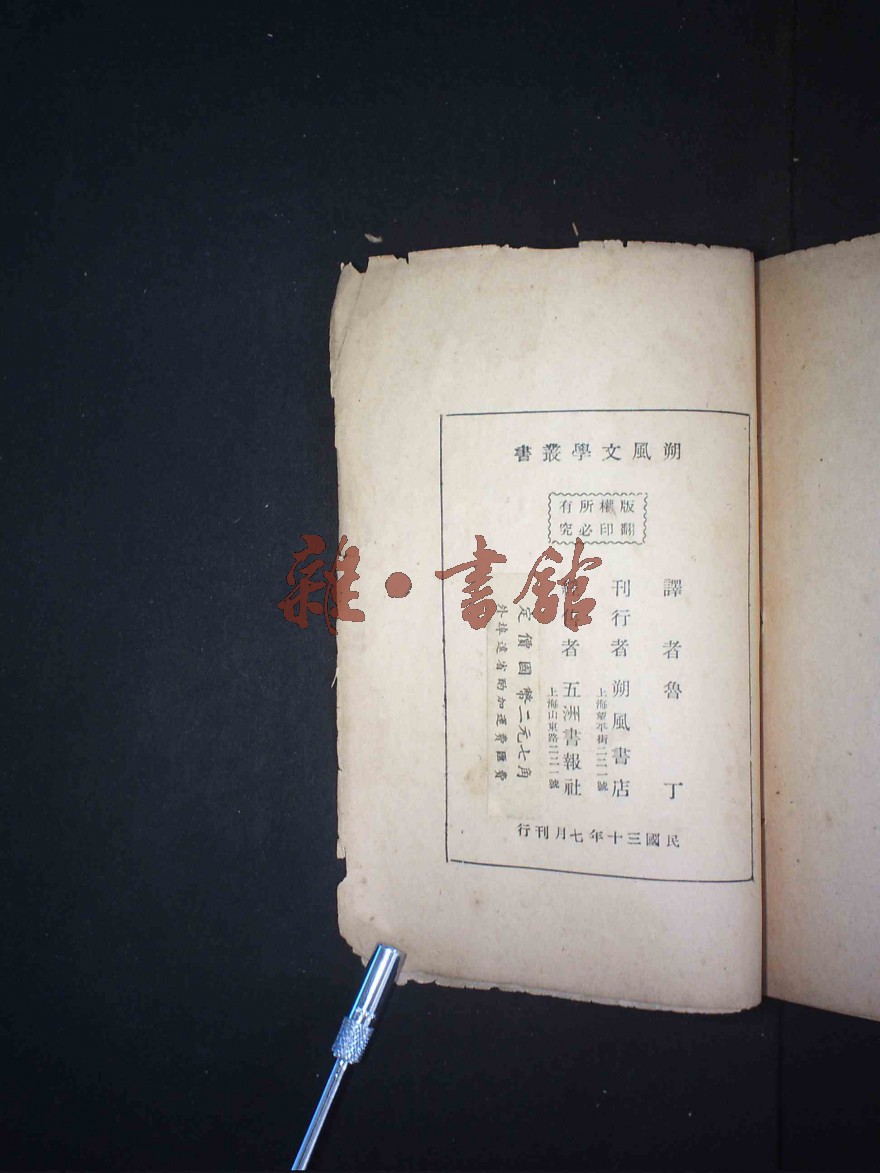 朔風文學叢書
版權所有
翻印必究
譯者魯丁
刊行者朔風書店
上海望平街二二一號
者五洲書報社
上海山東路二二一號
定價國幣二元七角
外埠遠省酌加運費匯費
民國三十年七月刊行
雜·書館